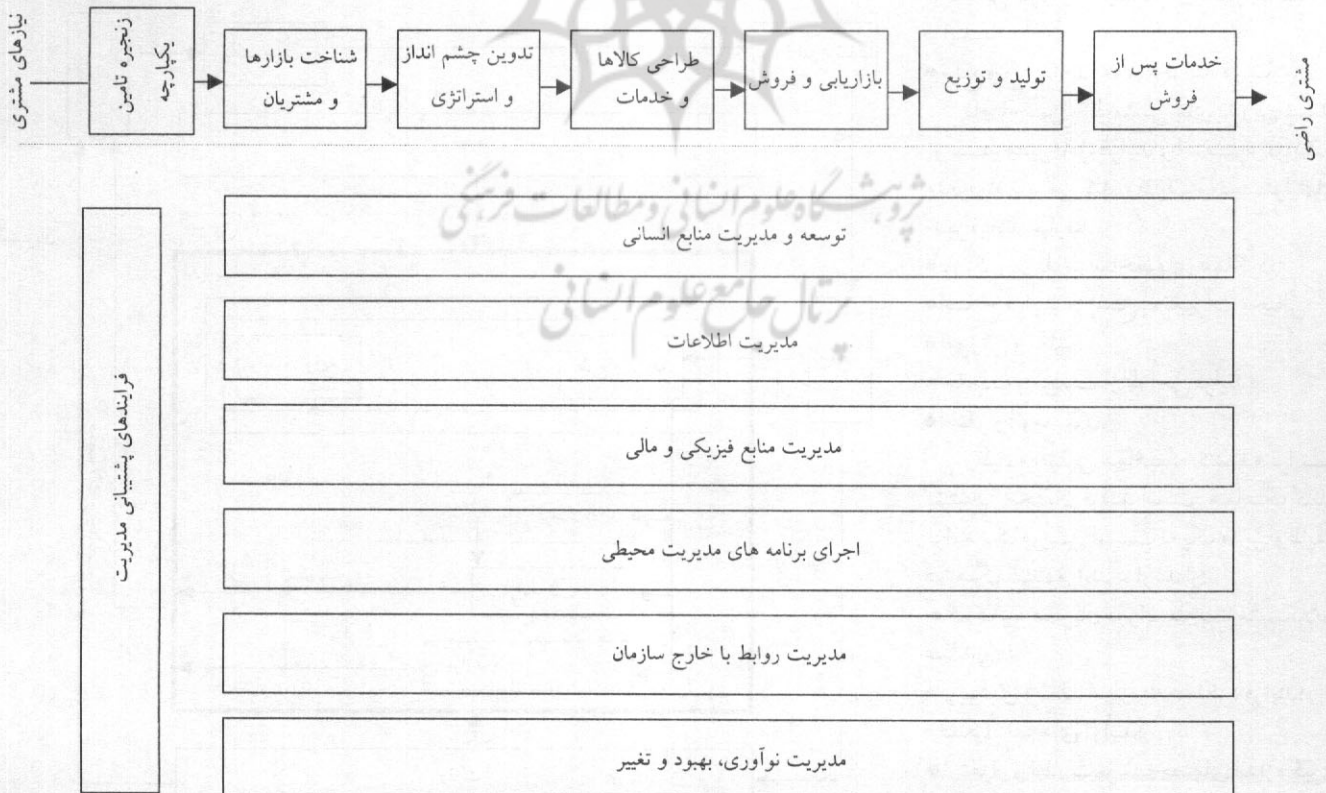 نیازهای مشتری
زنجیره تامین
یکپارچه
شناخت بازارها
و مشتریان
تدوین چشم انداز
و استراتژی
طراحی کالاها
و خدمات
بازاریابی و فروش
تولید و توزیع
خدمات پس از
فروش
مشتری راضی
پژوهشگاه علوم انسانی و مطالعات فرهنگی
پرتال جامع علوم انسانی
فرایندهای پشتیبانی مدیریت
توسعه و مدیریت منابع انسانی
مدیریت اطلاعات
مدیریت منابع فیزیکی و مالی
اجرای برنامه های مدیریت محیطی
مدیریت روابط با خارج سازمان
مدیریت نوآوری، بهبود و تغییر